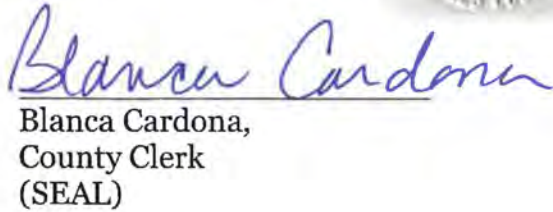 Blanca Cardona
Blanca Cardona,
County Clerk
(SEAL)